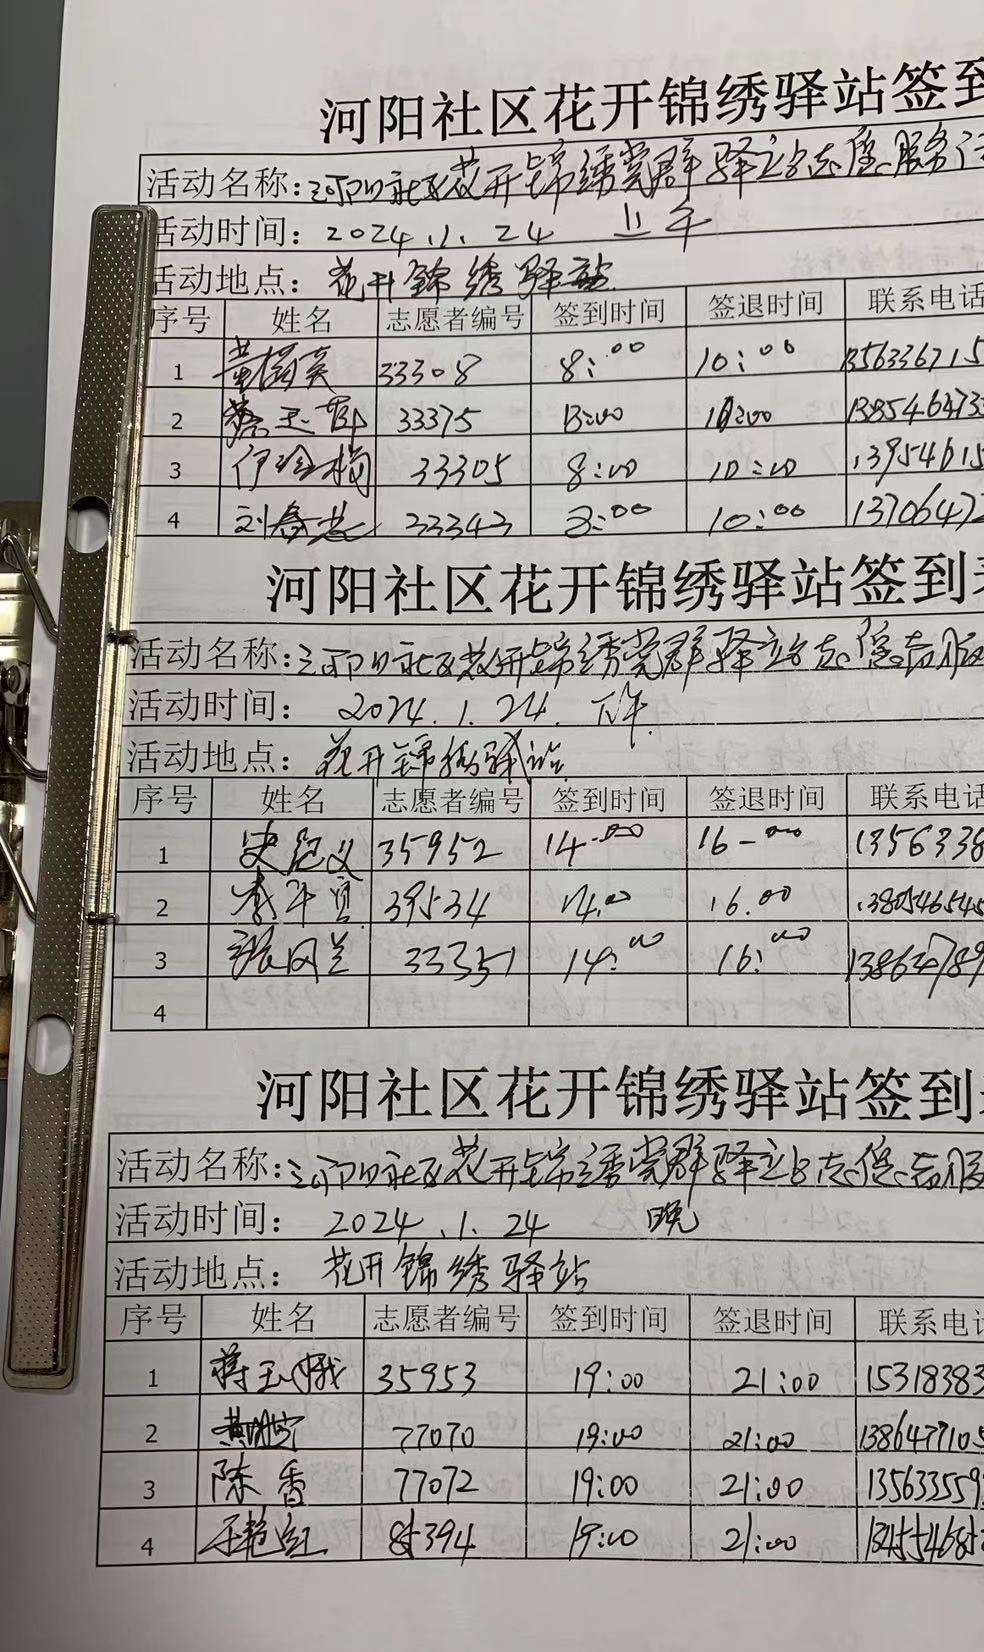 河阳社区花开锦绣驿站签到
活动名称:河阳社区花开锦绣党群驿站志愿服务
活动时间: 2024.1.24 上午
活动地点: 花开锦绣驿站
序号 姓名 志愿者编号 签到时间 签退时间 联系电话
1 33308 8:00 10:00 1356336715
2 蔡玉 33375 8:00 10:00 1385464733
3 伊玲梅 33305 8:00 10:00 13954615
4 刘春 33343 8:00 10:00 13706472
河阳社区花开锦绣驿站签到
活动名称:河阳社区花开锦绣党群驿站志愿者服
活动时间: 2024.1.24. 下午
活动地点: 花开锦绣驿站
序号 姓名 志愿者编号 签到时间 签退时间 联系电话
1 史 义 35952 14:00 16-00 1356338
2 李 39534 14.00 16.00 1380546545
3 张风兰 33351 14:00 16:00 13864789
4
河阳社区花开锦绣驿站签到
活动名称:河阳社区花开锦绣党群驿站志愿者服
活动时间: 2024.1.24 晚
活动地点: 花开锦绣驿站
序号 姓名 志愿者编号 签到时间 签退时间 联系电话
1 蒋玉娥 35953 19:00 21:00 15318383
2 黄 77070 19:00 21:00 1386477105
3 陈香 77072 19:00 21:00 135633559
4 艳红 85394 19:00 21:00 134554685